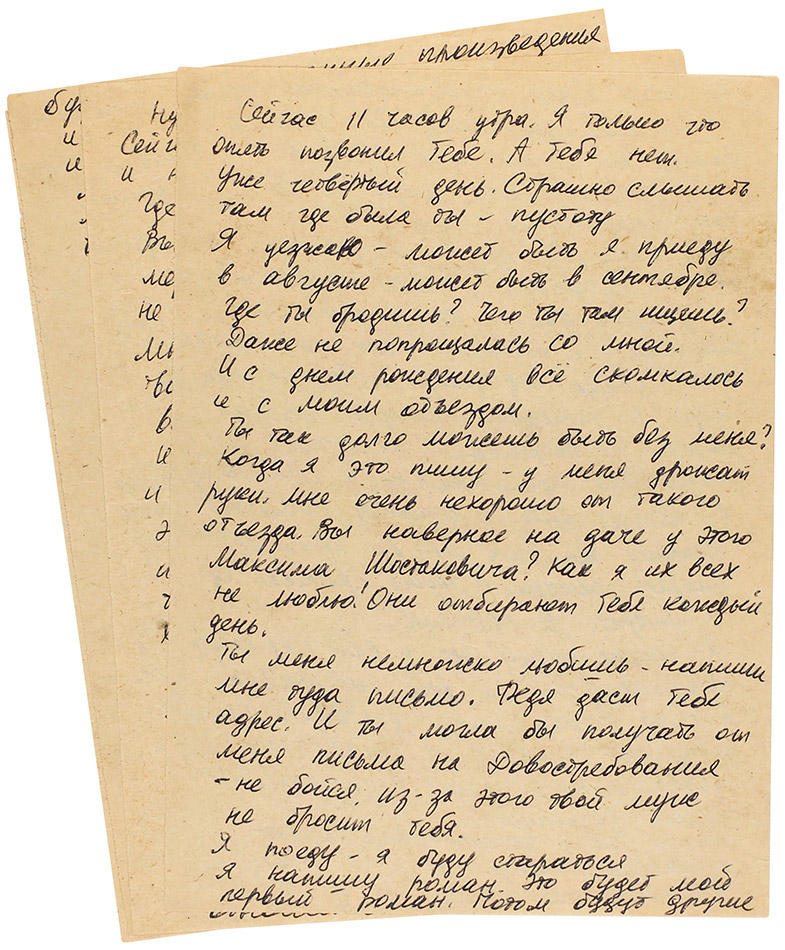 произведения
Сейчас 11 часов утра. Я только что
опять позвонил Тебе. А Тебя нет.
Уже четвёртый день. Страшно слышать
там где была ты – пустоту
Я уезжаю – может быть я приеду
в августе – может быть в сентябре.
Где ты бродишь? Чего ты там ищешь?
Даже не попрощалась со мной.
И с днем рождения всё скомкалось
и с моим отъездом.
Ты так долго можешь быть без меня?
Когда я это пишу – у меня дрожат
руки. Мне очень нехорошо от такого
отъезда. Вы наверное на даче у этого
Максима Шостаковича? Как я их всех
не люблю! Они отбирают тебя каждый
день.
Ты меня немножко любишь – напиши
мне туда письмо. Федя даст тебе
адрес. И ты могла бы получать от
меня письма на Довостребования
– не бойся, из-за этого твой муж
не бросит тебя.
Я поеду – я буду стараться
я напишу роман. Это будет мой
первый роман. Потом будут другие
Сейч
и н
Где
Вы
не
и
и
э
и